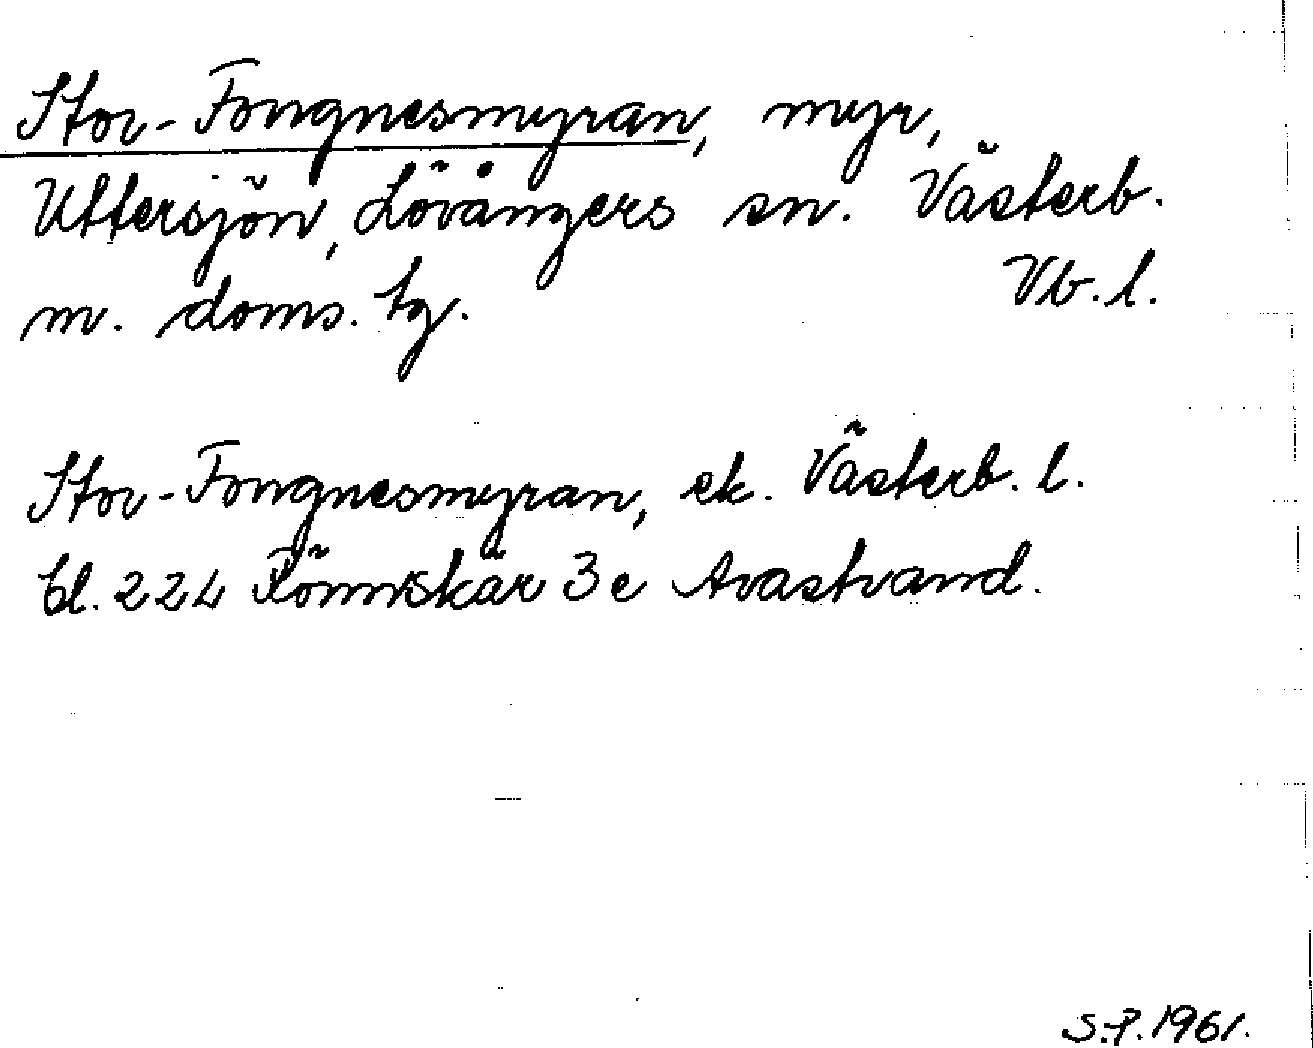 Stor-Fongnesmyran, myr,
Uttersjön, Lövångers sn. Västerb.
m. doms. tg. Vb. l.
Stor-Fongnesmyran, ek. Västerb. l.
bl. 224 Rönnskär 3 e Avastrand.
S.P. 1961.